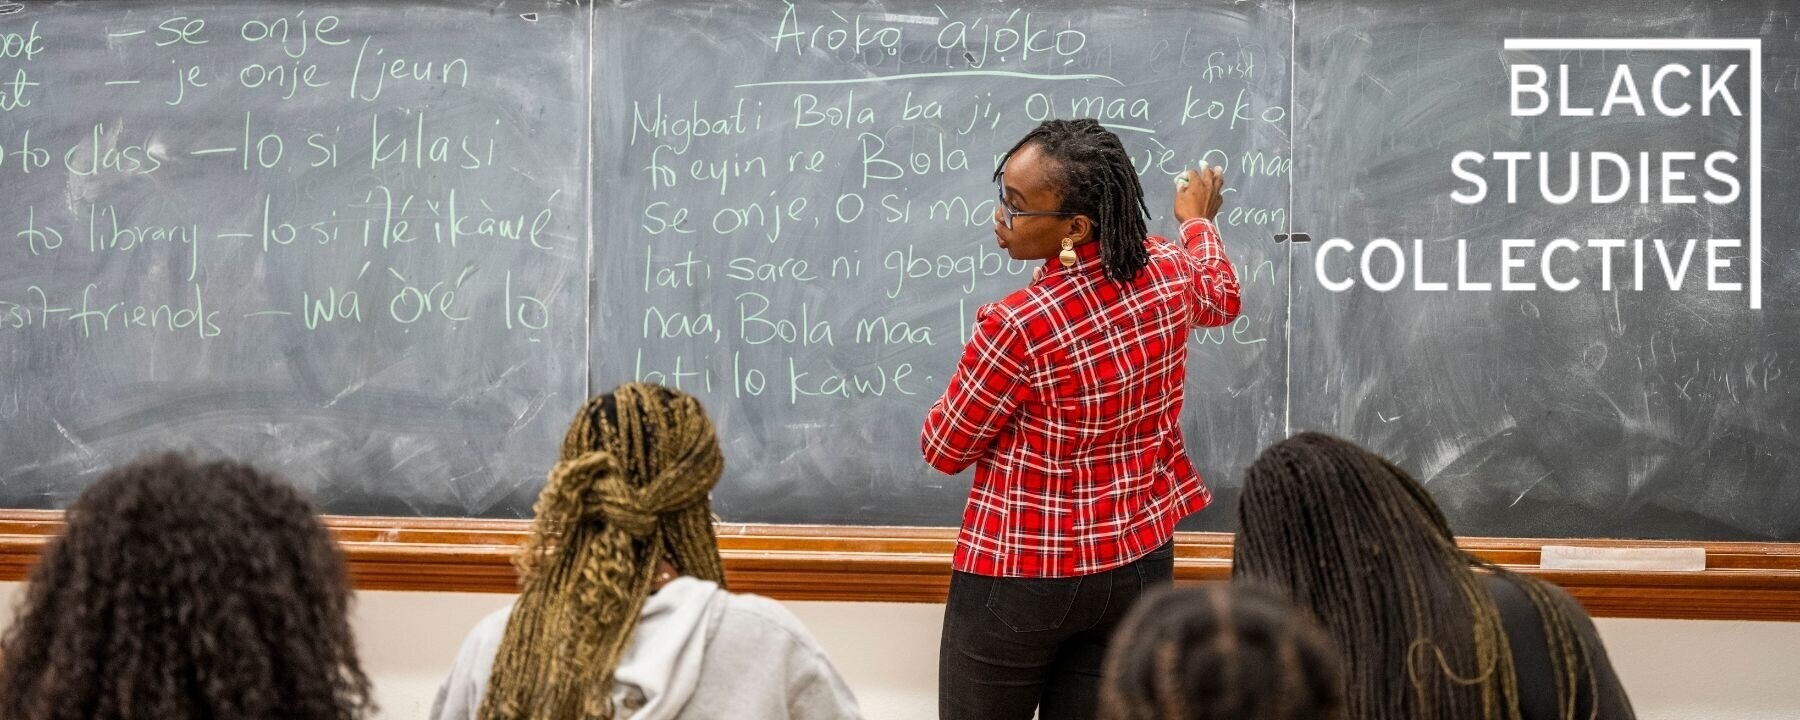 – se onje
– je onje / jeun
to class – lo si kilasi
to library – lo si ílé ìkàwé
friends – wá òré lọ
Àròkọ àjọ́kọ
first
Migbati Bola ba ji, O maa koko
fo eyin re. Bola O maa
se onje, O si
lati sare ni gbogbo
naa, Bola maa
lati lo kawe.
BLACK
STUDIES
COLLECTIVE